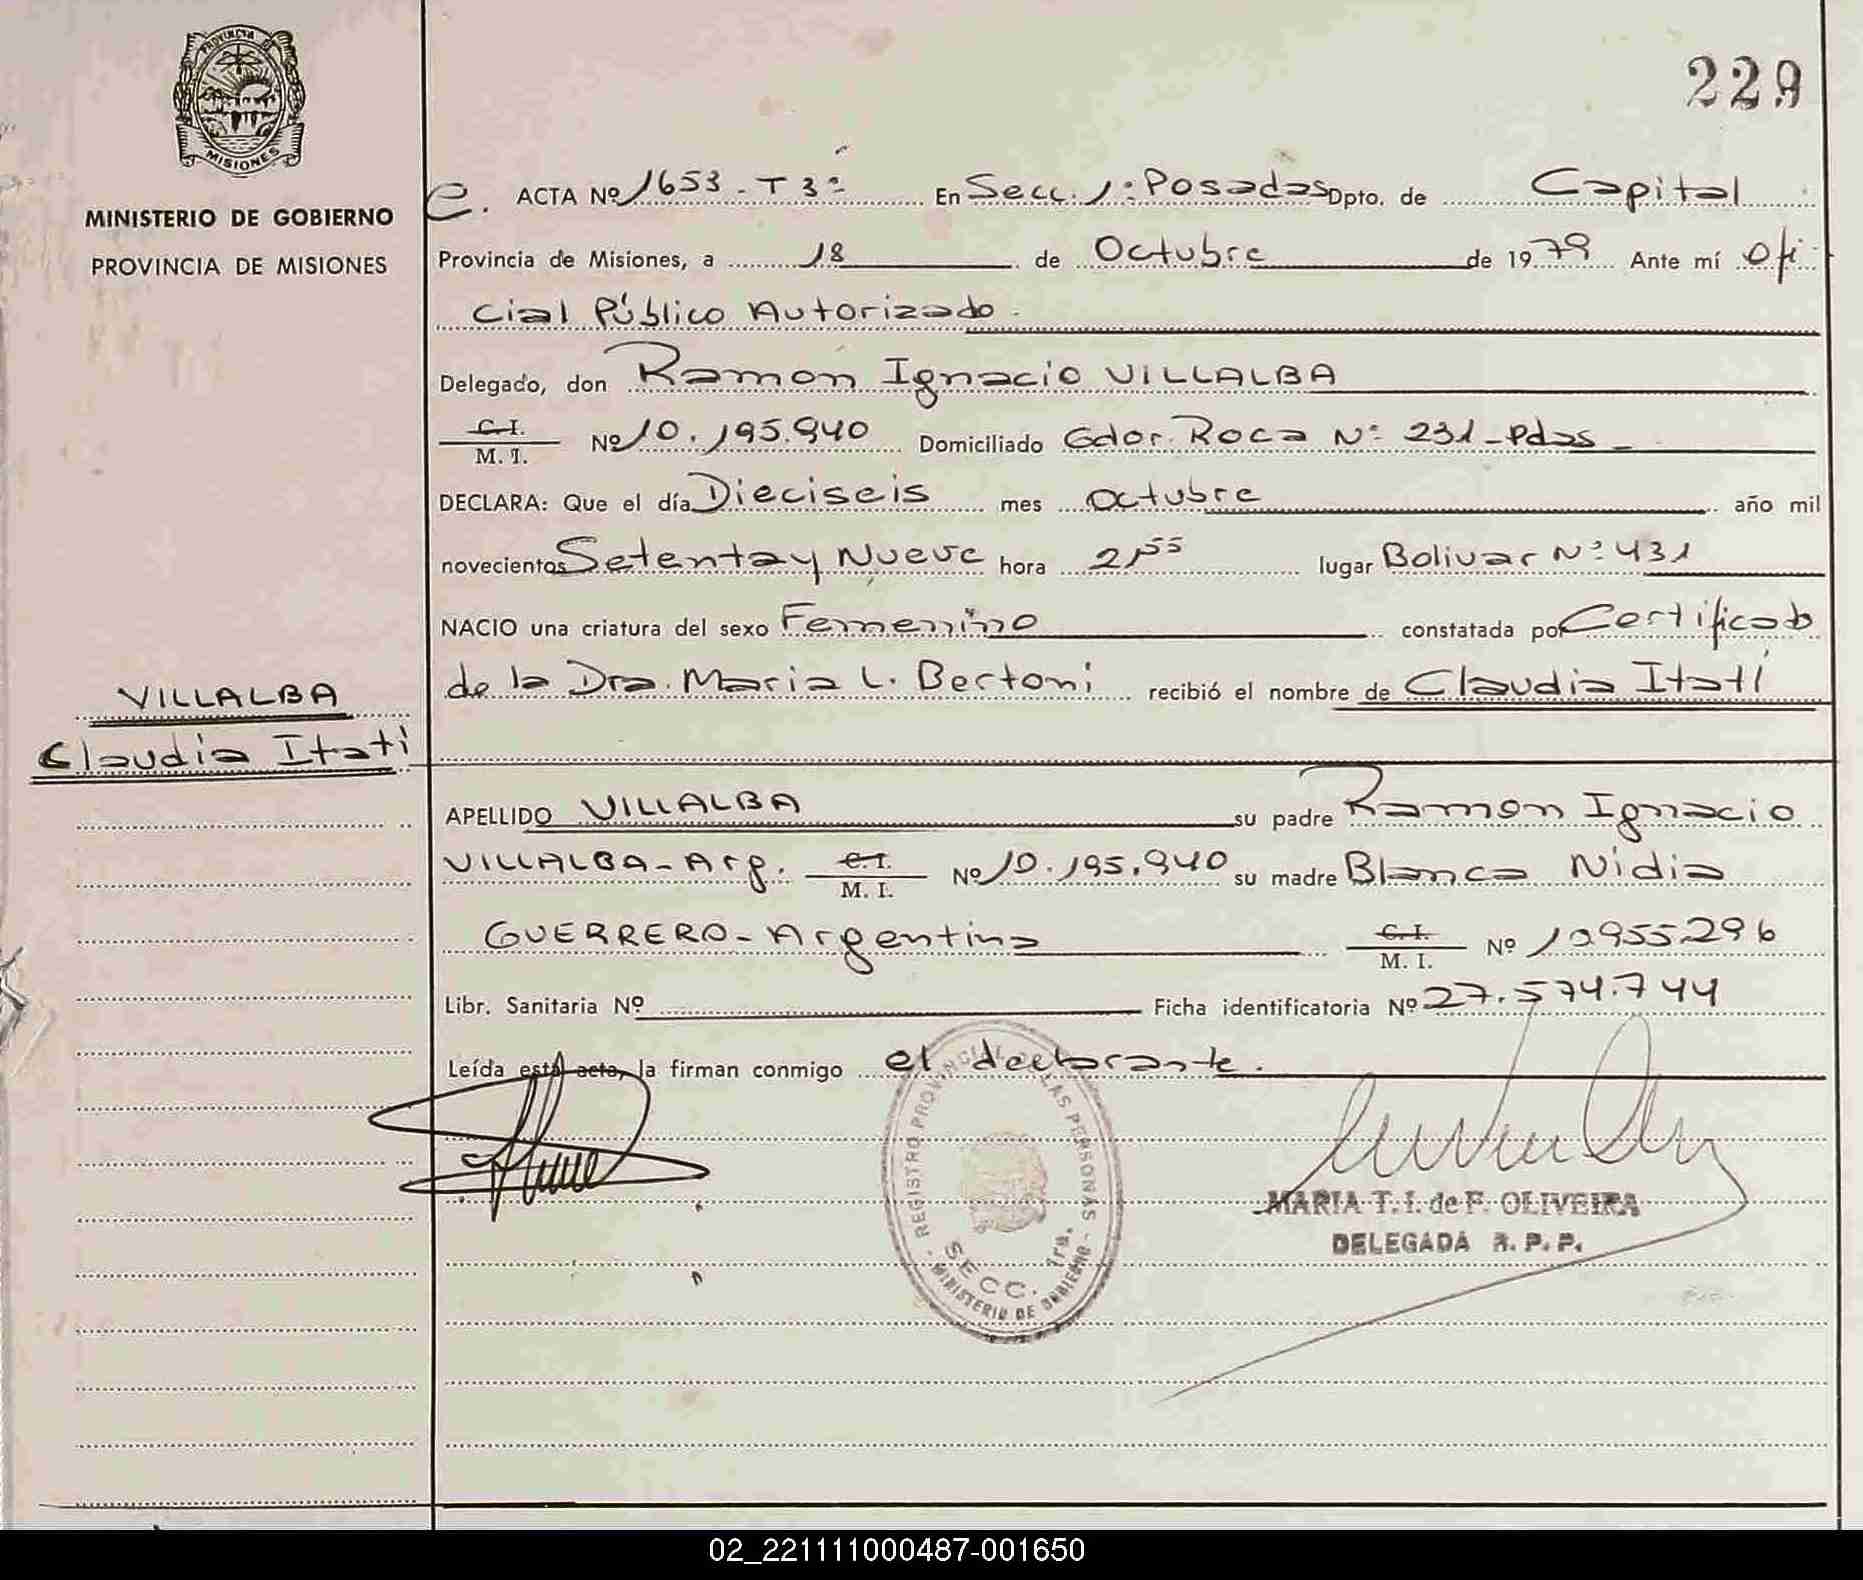 PROVINCIA DE
MISIONES
MINISTERIO DE GOBIERNO
PROVINCIA DE MISIONES
VILLALBA
Claudia Itatí
229
e. ACTA Nº 1653 - T 3º En Secc. 1º Posadas Dpto. de Capital
Provincia de Misiones, a 18 de Octubre de 1979 Ante mí Ofi-
cial Público Autorizado.
Delegado, don Ramon Ignacio VILLALBA
C. I.
M. I. Nº 10.195.940 Domiciliado Gdor. Roca Nº 231 - Pdas -
DECLARA: Que el día Dieciseis mes Octubre año mil
novecientos Setenta y Nueve hora 21,55 lugar Bolivar Nº 431
NACIO una criatura del sexo Femenino constatada por Certificado
de la Dra. Maria L. Bertoni recibió el nombre de Claudia Itatí
APELLIDO VILLALBA su padre Ramon Ignacio
VILLALBA - Arg. C. I. M. I. Nº 10.195.940 su madre Blanca Nidia
GUERRERO - Argentina C. I. M. I. Nº 10955296
Libr. Sanitaria Nº Ficha identificatoria Nº 27.574.744
Leída está acta, la firman conmigo el declarante.
REGISTRO PROVINCIAL DE LAS PERSONAS
SECC. 1ra.
MINISTERIO DE GOBIERNO
MARIA T. I. de F. OLIVEIRA
DELEGADA R. P. P.
02_221111000487-001650